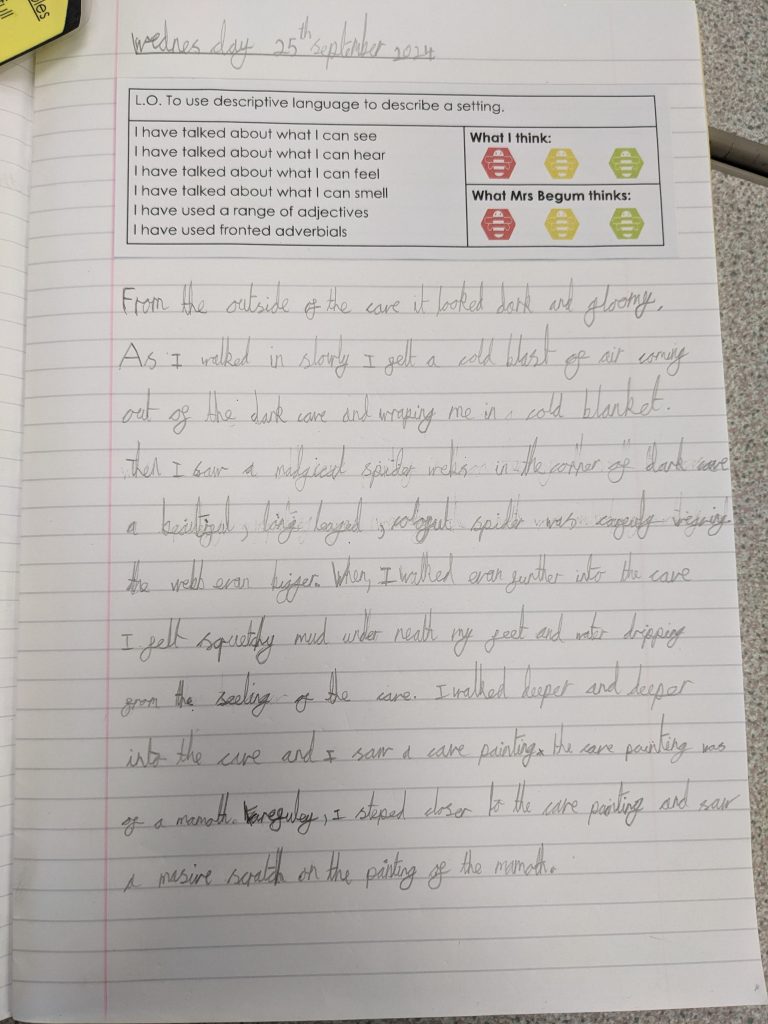 ples
full
Wednesday 25th September 2024
L.O. To use descriptive language to describe a setting.
I have talked about what I can see
I have talked about what I can hear
I have talked about what I can feel
I have talked about what I can smell
I have used a range of adjectives
I have used fronted adverbials
What I think:
What Mrs Begum thinks:
From the outside of the cave it looked dark and gloomy.
As I walked in slowly I felt a cold blast of air coming
out of the dark cave and wraping me in a cold blanket.
then I saw a madgical spider webs in the corner of dark cave
a beautiful, long leaged, spider was
the webb evan bigger. When, I walked evan further into the cave
I felt squetchy mud under neath my feet and water dripping
from the seeling of the cave. I walked deeper and deeper
into the cave and I saw a cave painting. the cave painting was
of a mamoth. I steped closer to the cave painting and saw
a masive scratch on the painting of the mamoth.